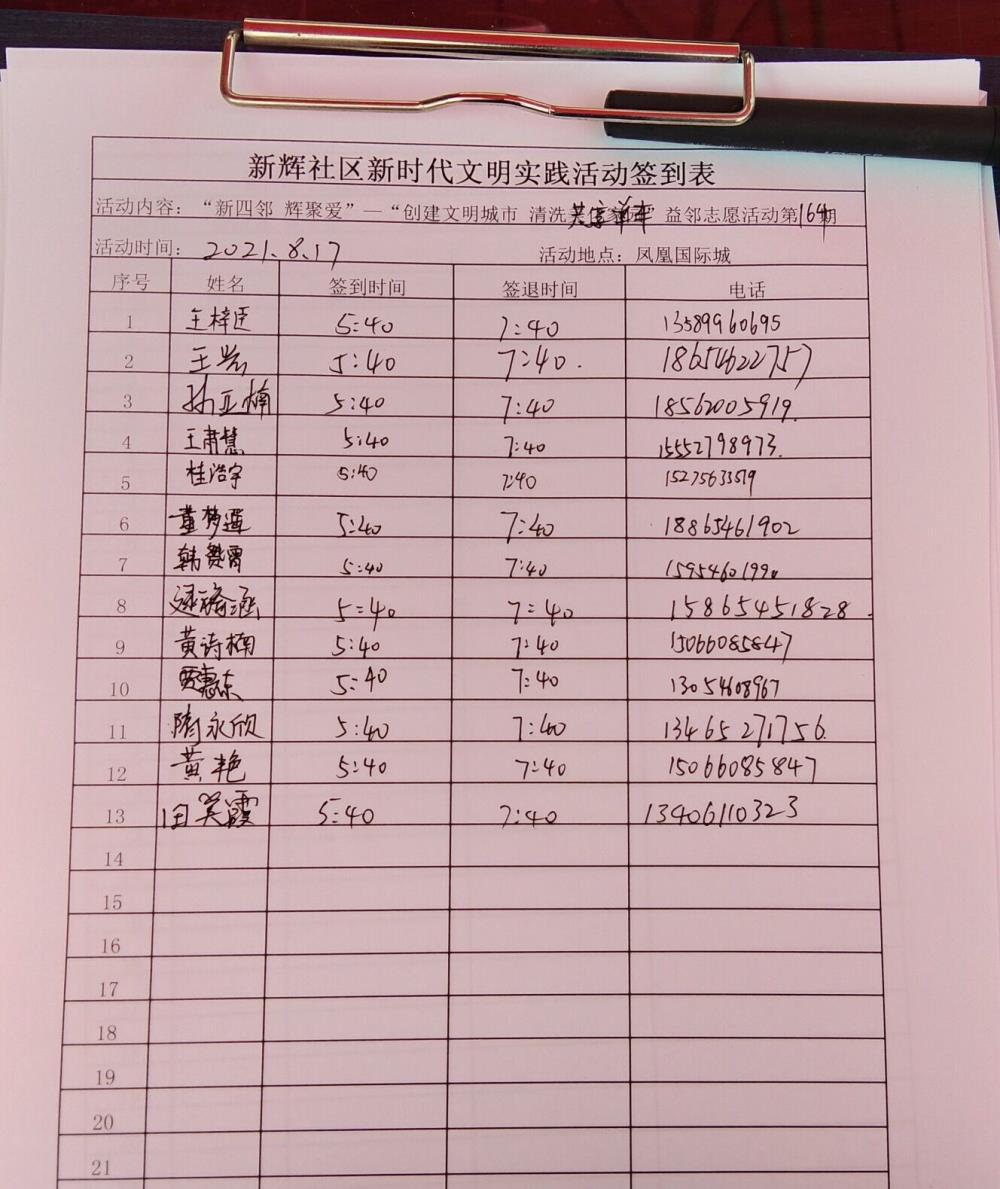 新辉社区新时代文明实践活动签到表
活动内容：“新四邻 辉聚爱”—“创建文明城市 清洗共享单车” 益邻志愿活动第164期
活动时间：2021.8.17 活动地点：凤凰国际城
序号 姓名 签到时间 签退时间 电话
1 王梓臣 5:40 7:40 13589960695
2 王岩 5:40 7:40. 18654622757
3 孙亚楠 5:40 7:40 18562005919.
4 王肃慧 5:40 7:40 15552798973.
5 桂浩宇 5:40 7:40 15275633519
6 董梦 5:40 7:40 18865461902
7 韩 5:40 7:40 15954601990
8 涵 5:40 7:40 15865451828.
9 黄诗楠 5:40 7:40 15066085847
10 贾惠东 5:40 7:40 13054608967
11 隋永欣 5:40 7:40 13465271756.
12 黄艳 5:40 7:40 15066085847
13 田笑霞 5:40 7:40 13406110323
14
15
16
17
18
19
20
21